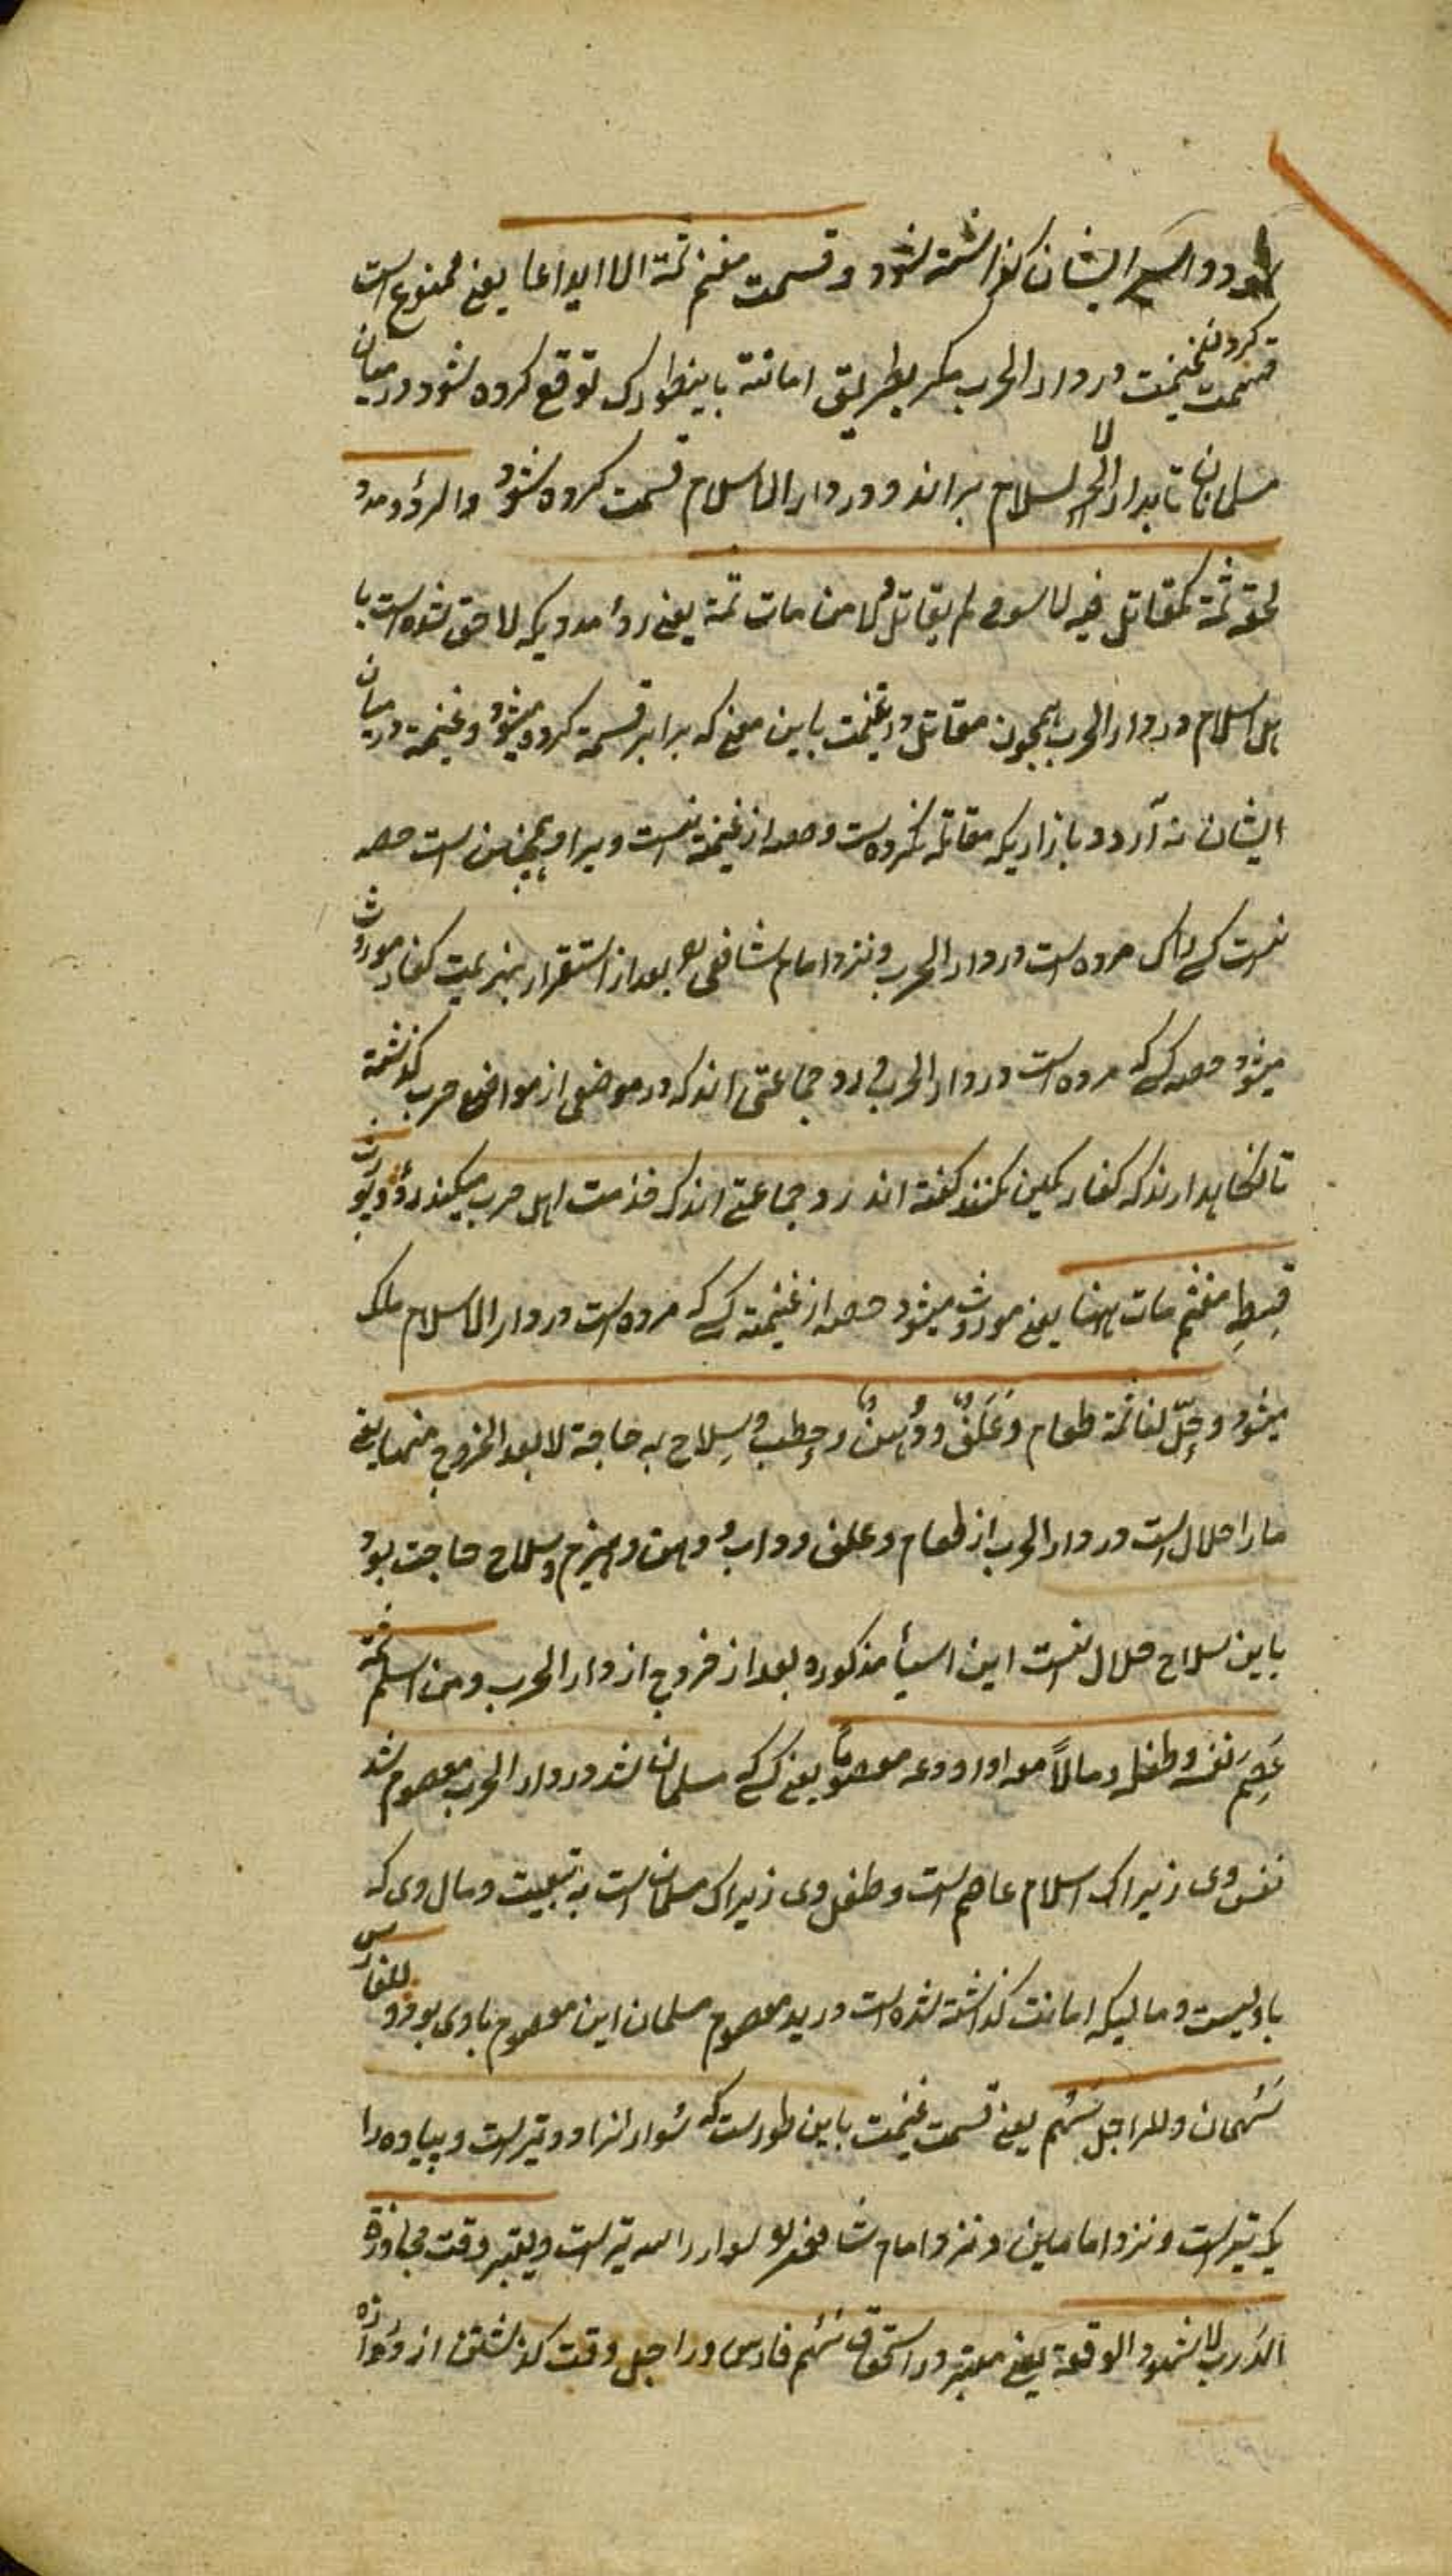 شود و اسیر ایشان گذاشته نشود و قسمت مغنم ثمة الا ایداعا یعنی ممنوع است
قسمت کردن غنیمت در دار الحرب مگر بطریق امانة باینطور که توقع کرده شود در میان
مسلمانان تا بدار الاسلام برانند و در دار الاسلام قسمت کرده شود والردؤ ومدد
لحقه ثمة کمقاتل فیه لا سوقی لم یقاتل ولا من مات ثمة یعنی ردؤ مددیکه لاحق شده است با
اهل اسلام در دار الحرب همچون مقاتل در غنیمت باین معنی که برابر قسمة کرده میشود و غنیمة در میان
ایشان نه آرد و بازاریکه مقاتله نکرده است و حصه از غنیمة نیست ویرا و همچنین است حصه
نیست کسی را که مرده است در دار الحرب و نزد امام شافعی بعد از استقرار هزیمت کفار موروث
میشود حصه کسی که مرده است در دار الحرب و ردو جماعتی اند که در موضعی از مواضع حرب گذشته
تا نگاهدارند که کفار کمین نکنند گفته اند ردو جماعتی اند که خدمت اهل حرب میکنند ردؤ ویورث
قسط مغنم مات بهنا یعنی موروث میشود حصه از غنیمته کسی که مرده است در دار الاسلام ملک
میشود وحل لنا ثمة طعام وعلف ودهن وحطب وسلاح به حاجة لا بعد الخروج منها یعنی
ما را حلال است در دار الحرب از طعام و علف دواب و دهن و هیزم و سلاح حاجت بود
باین سلاح حلال نیست این اشیأ مذکوره بعد از خروج از دار الحرب ومن اسلم ثمة
عصم نفسه وطفله ومالا معه او اودعه معصوما یعنی کسی که مسلمان شد در دار الحرب معصوم شد
نفس وی زیرا که اسلام عاصم است و طفل وی زیرا که مسلمان است به تبعیت و مال وی که
با ویست و مالیکه امانت گذاشته شده است در ید معصوم مسلمان این معصوم یا ذمی بود وللفارس
سهمان وللراجل سهم یعنی قسمت غنیمت باین طورست که سوار را دو تیر است و پیاده را
یک تیر است و نزد امامین و نزد امام شافعی سوار را سه تیر است ویعتبر وقت مجاوزة
الدرب لا شهود الوقعة یعنی معتبر در استحقاق سهم فارس و راجل وقت گذشتن از دروازه